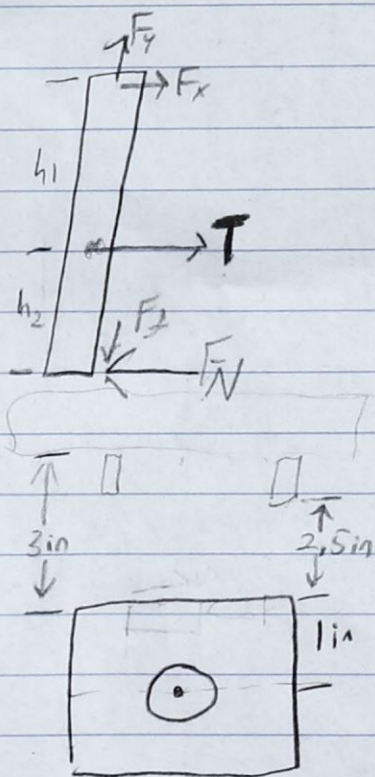 Fy
Fx
h1
T
h2
Ff
FN
3in
2,5in
1in